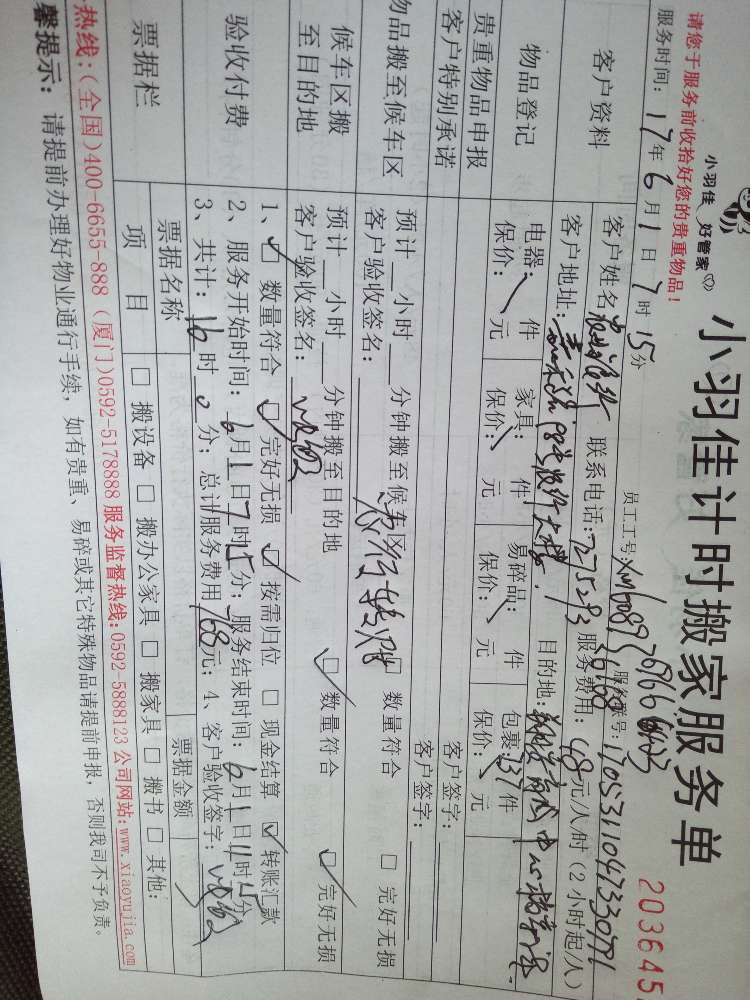 小羽佳 好管家
小羽佳计时搬家服务单
203645
请您于服务前收拾好您的贵重物品!
员工工号:
服务账号: 170531104733071
服务时间: 17年6月1日7时15分
客户资料
客户姓名
联系电话: 7275293
服务费用: 48元/人/时(2小时起/人)
客户地址:
目的地:
物品登记
电器: 件 家具: 件 易碎品: 件 包裹: 37件
保价: 元 保价: 元 保价: 元 保价: 元
贵重物品申报
客户签字:
客户特别承诺
客户签字:
物品搬至候车区
预计 小时 分钟搬至候车区 □ 数量符合 □ 完好无损
客户验收签名:
候车区搬至目的地
预计 小时 分钟搬至目的地 □ 数量符合 □ 完好无损
客户验收签名:
验收付费
1、□ 数量符合 □ 完好无损 □ 按需归位 □ 现金结算 □ 转账汇款
2、服务开始时间: 6月1日7时15分; 服务结束时间: 6月1日11时15分
3、共计: 16时0分; 总计服务费用768元; 4、客户验收签字:
票据栏
票据名称
票据金额
项目
□ 搬设备 □ 搬办公家具 □ 搬家具 □ 搬书 □ 其他:
热线:(全国)400-6655-888(厦门)0592-5178888 服务监督热线:0592-5888123 公司网站:www.xiaoyujia.com
馨提示: 请提前办理好物业通行手续, 如有贵重、易碎或其它特殊物品请提前申报, 否则我司不予负责。